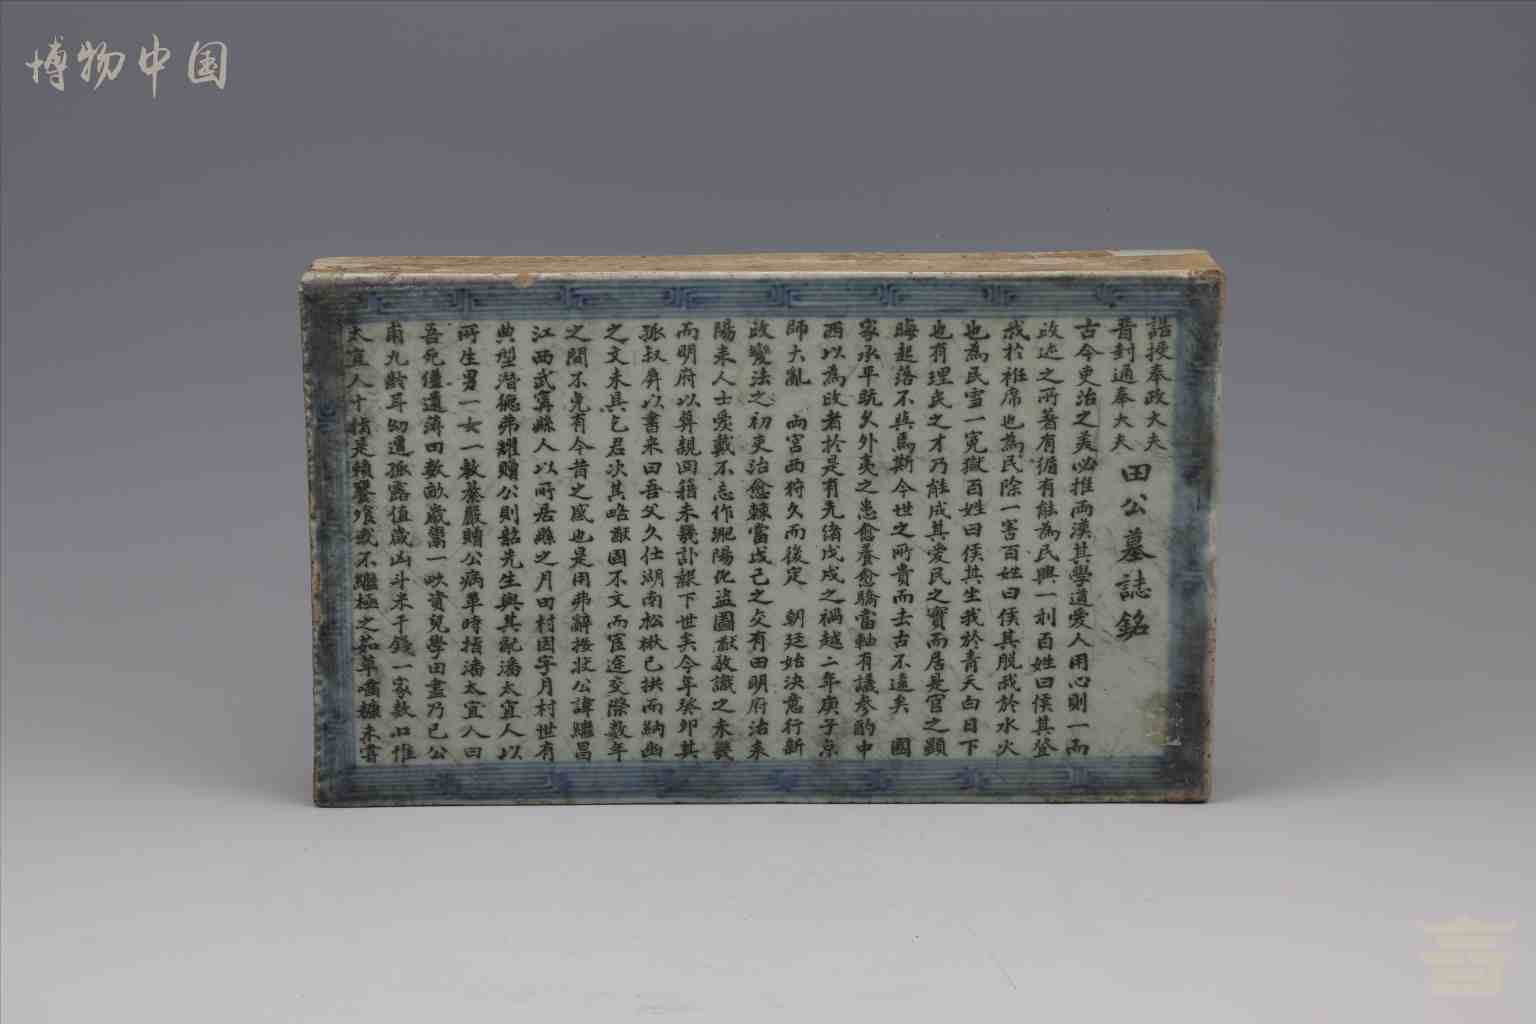 博物中国
誥授奉政大夫
晉封通奉大夫
田公墓誌銘
古今吏治之美必推兩漢其學道愛人用心則一而
政迹之所著有循有能為民興一利百姓曰侯其登
我於袵席也為民除一害百姓曰侯其脫我於水火
也為民雪一冤獄百姓曰侯其生我於青天白日下
也有理民之才乃能成其愛民之實而居是官之顯
晦起落不與焉斯今世之所貴而去古不遠矣 國
家承平既久外夷之患愈養愈驕當軸有議參酌中
西以為政者於是有光緒戊戌之禍越二年庚子京
師大亂 兩宮西狩久而後定 朝廷始決意行新
政變法之初吏治愈棘當戊己之交有田明府治耒
陽耒人士愛戴不忘作耒陽化盜圖猷敬識之未幾
而明府以算親回籍未幾訃報下世矣今年癸卯其
孤叔屏以書來曰吾父久仕湖南松楸已拱而納幽
之文未具乞君次其略猷固不文而宦途交際數年
之間不免有今昔之感也是用弗辭按狀公諱繼昌
江西武寧縣人以所居縣之月田村因字月村世有
典型潛德弗耀贈公則韶先生與其配潘太宜人以
所生男一女一教養嚴贈公病革時指潘太宜人曰
吾死僅遺薄田數畝歲鬻一畝資兒學田盡乃已公
甫九齡耳幼遭孤露值歲凶斗米千錢一家數口惟
太宜人十指是賴饔飧或不繼極之茹草嚙糠未嘗